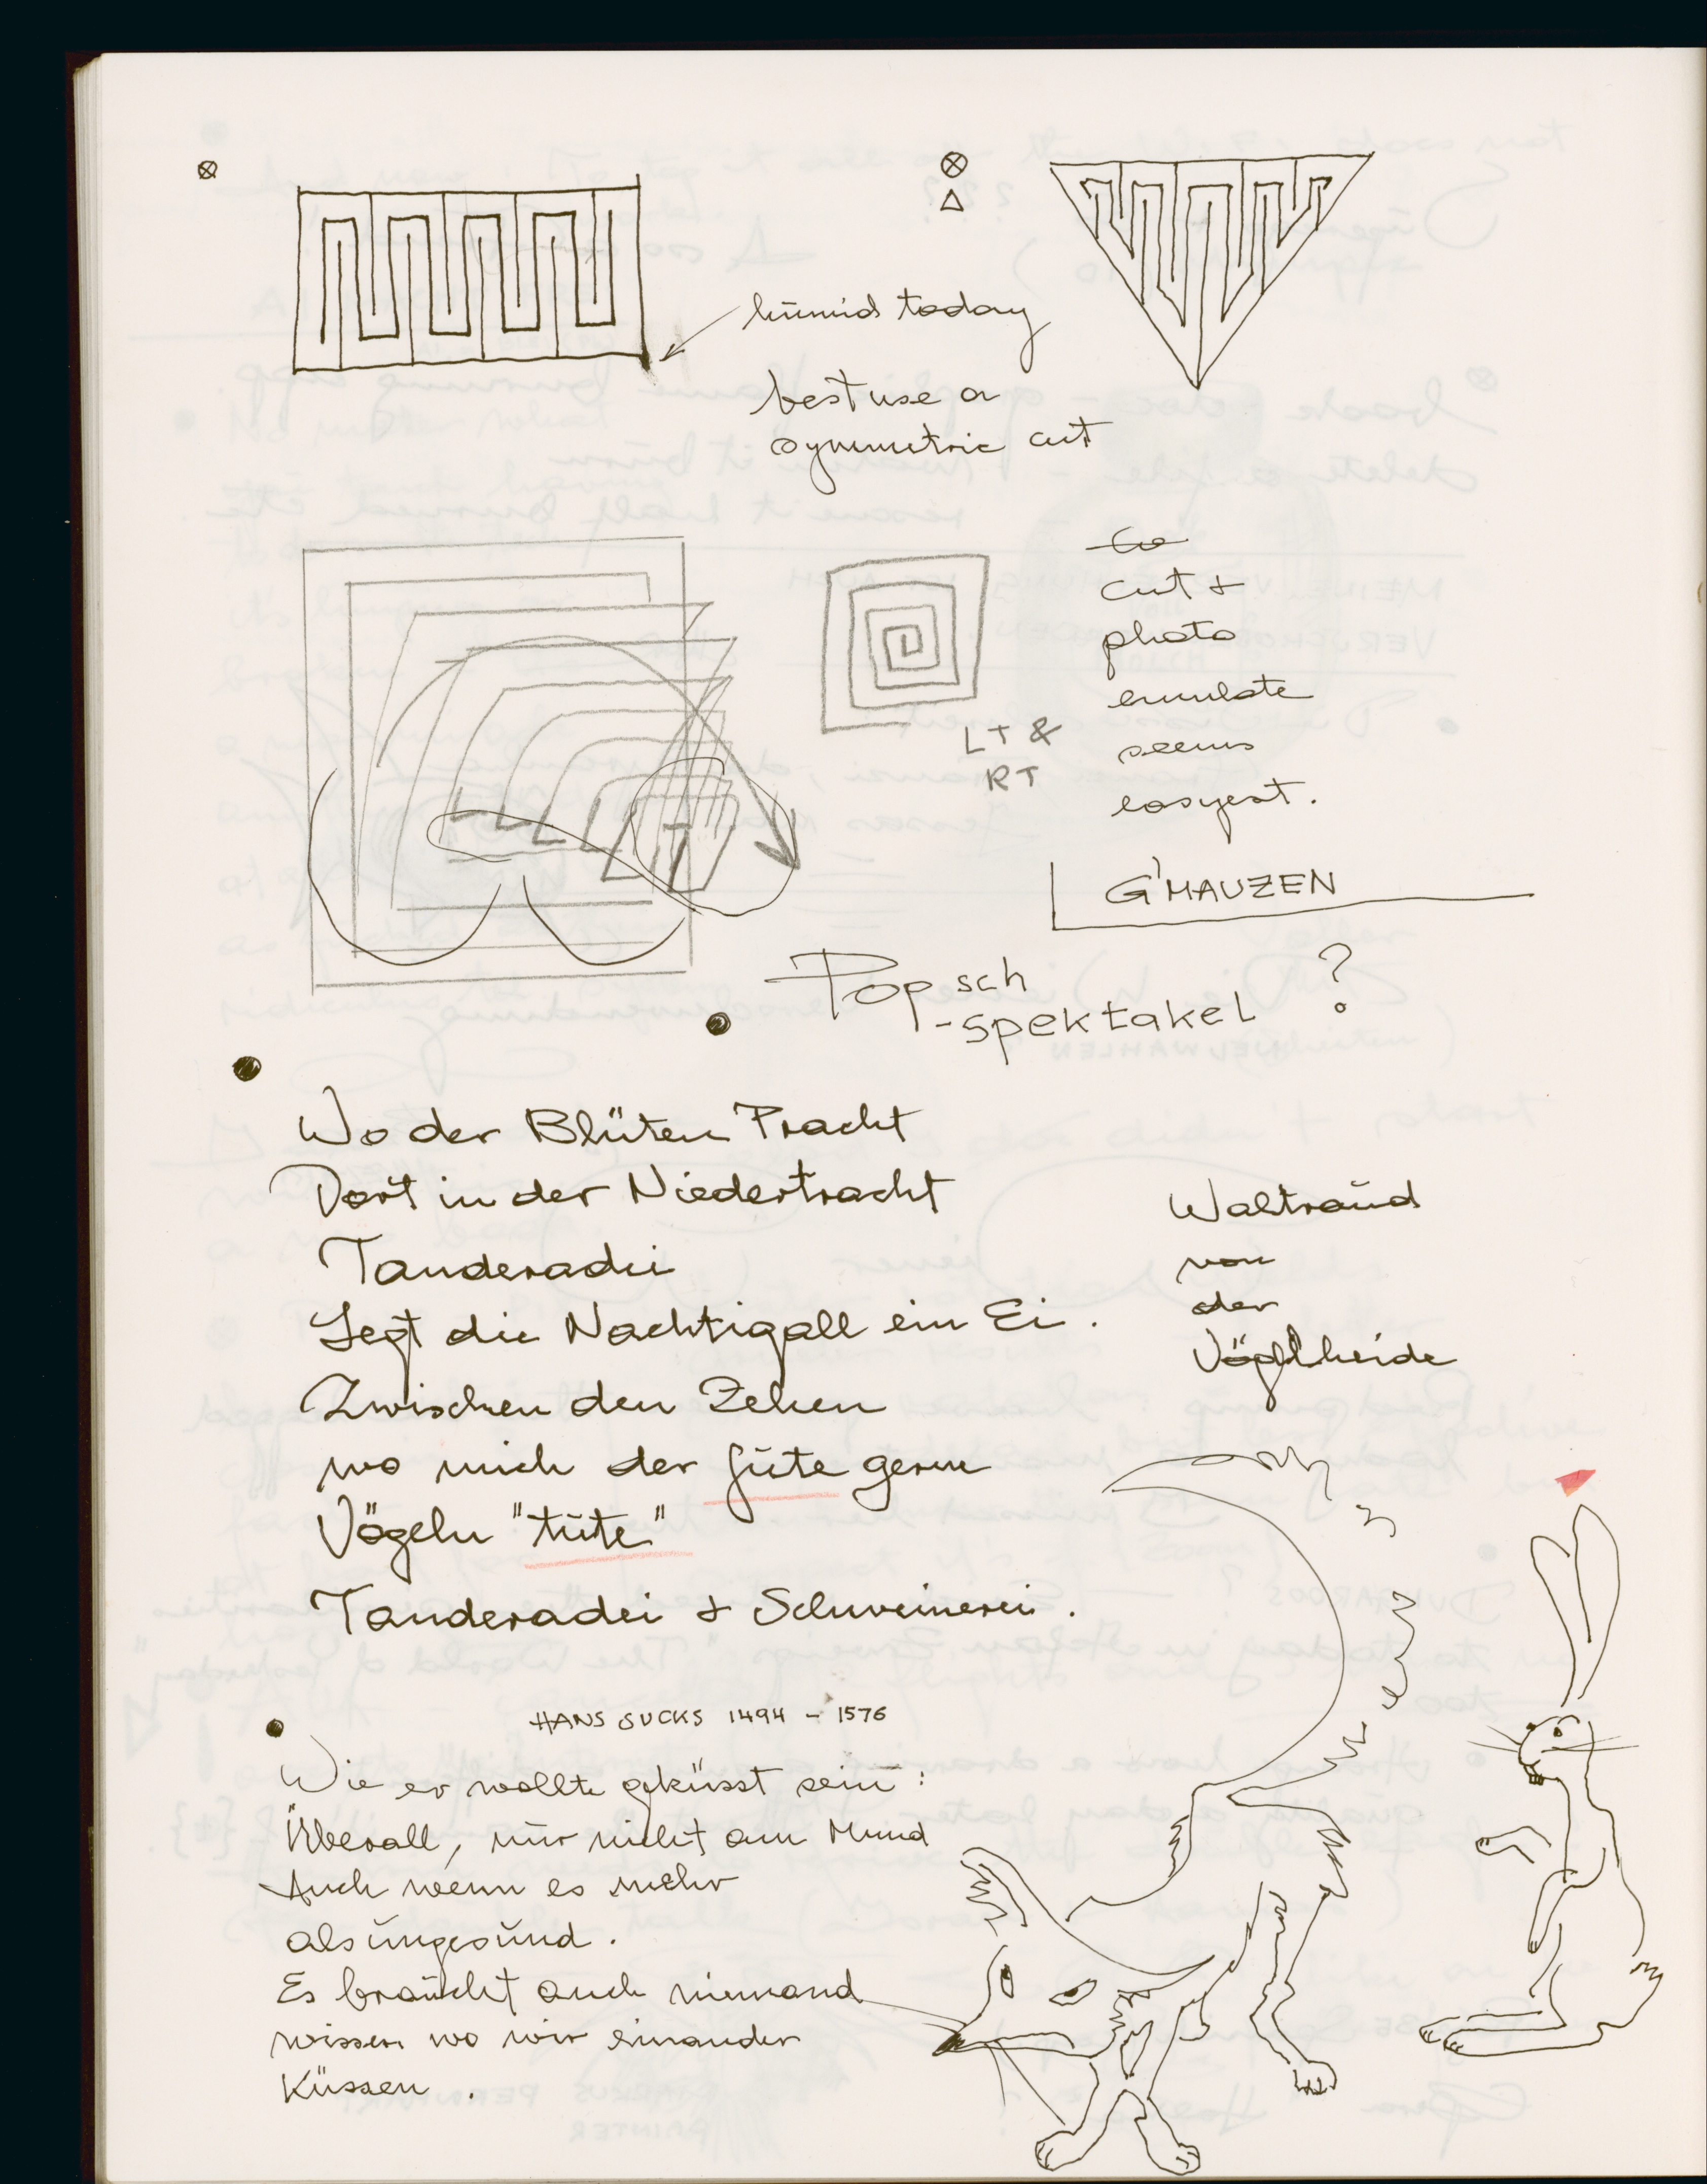 humid today
best use a
symmetric cut
cut +
photo
emulate
seems
easyest.
LT &
RT
G'MAUZEN
Popsch
-spektakel ?
Wo der Blüten Pracht
Dort in der Niedertracht
Tanderadei
Legt die Nachtigall ein Ei.
Zwischen den Zehen
wo mich der gūte gerne
Vögeln "tūte"
Tanderadei + Schweinerei.
Waltraūd
von
der
HANS SUCKS 1494 - 1576
Wie er wollte geküsst sein:
Überall, nūr nicht am Mund
Auch wenn es mehr
als ūngesūnd.
Es braūcht auch niemand
wissen wo wir einander
Küssen.